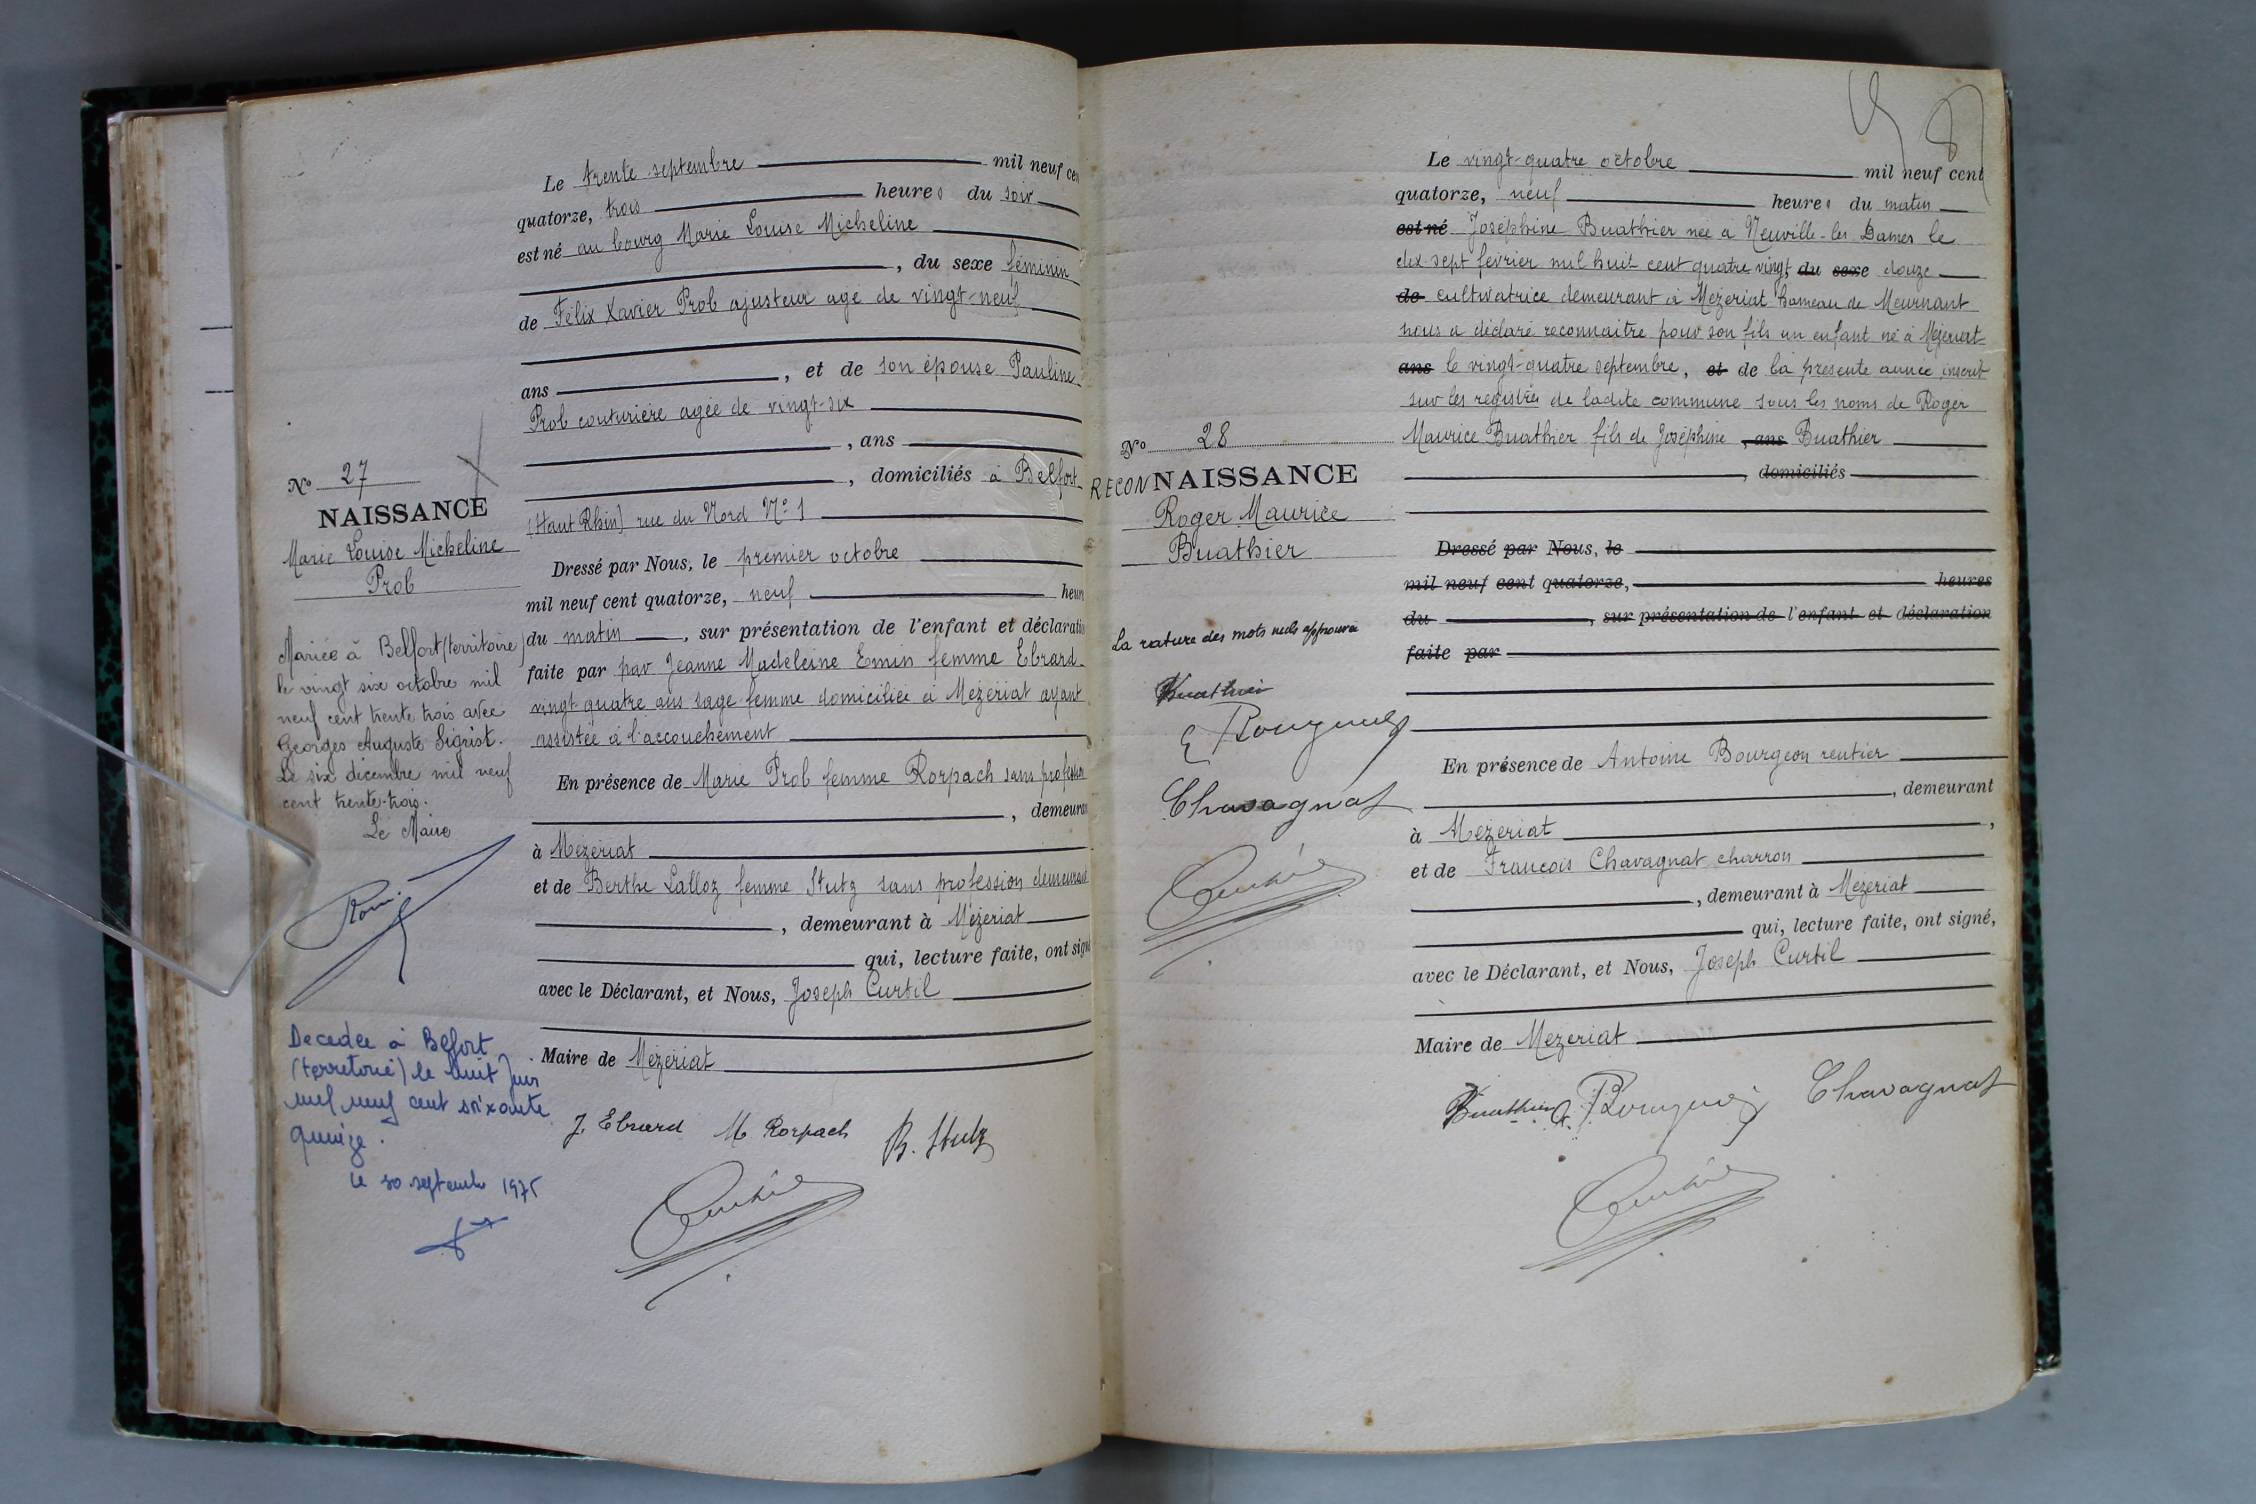 Le trente septembre mil neuf cen
quatorze, trois heures du soir
est né au bourg Marie Louise Micheline
, du sexe féminin
de Félix Xavier Prob ajusteur age de vingt-neuf
ans , et de son épouse Pauline
Prob couturière agée de vingt-six
, ans
, domiciliés à Belfort
(Haut Rhin) rue du Nord N° 1
Dressé par Nous, le premier octobre
mil neuf cent quatorze, neuf heure
du matin , sur présentation de l'enfant et déclaratio
faite par par Jeanne Madeleine Emin femme Ebrard
vingt quatre ans sage femme domiciliée à Mézériat ayant
assistée à l'accouchement
En présence de Marie Prob femme Rorpach sans profession
, demeuran
à Mézériat
et de Berthe Lalloz femme Stutz sans profession demeurant
, demeurant à Mézériat
qui, lecture faite, ont signé
avec le Déclarant, et Nous, Joseph Curtil
Maire de Mézériat
J. Ebrard M Rorpach B. Stutz
N° 27
NAISSANCE
Marie Louise Micheline
Prob
Mariée à Belfort (territoire)
le vingt six octobre mil
neuf cent trente trois avec
Georges Auguste Sigrist.
Le six décembre mil neuf
cent trente-trois.
Le Maire
Decedee à Belfort
(territoire) le huit Juin
mil neuf cent soixante
quinze.
le 30 septembre 1975
Le vingt-quatre octobre mil neuf cent
quatorze, neuf heures du matin
est né Joséphine Buathier née à Neuville-les Dames le
dix sept février mil huit cent quatre vingt du sexe douze
de cultivatrice demeurant à Mézériat hameau de Meurnant
nous a déclaré reconnaitre pour son fils un enfant né à Mézériat
ans le vingt-quatre septembre, et de la présente année inscrit
sur les registres de ladite commune sous les noms de Roger
Maurice Buathier fils de Joséphine , ans Buathier
, domiciliés
Dressé par Nous, le
mil neuf cent quatorze, heures
du , sur présentation de l'enfant et déclaration
faite par
En présence de Antoine Bourgeon rentier
, demeurant
à Mézériat ,
et de François Chavagnat charron
, demeurant à Mézériat
qui, lecture faite, ont signé,
avec le Déclarant, et Nous, Joseph Curtil
Maire de Mezeriat
Buathier Chavagnat
N° 28
RECONNAISSANCE
Roger Maurice
Buathier
La rature des mots nuls approuvée
Buathier
Chavagnat